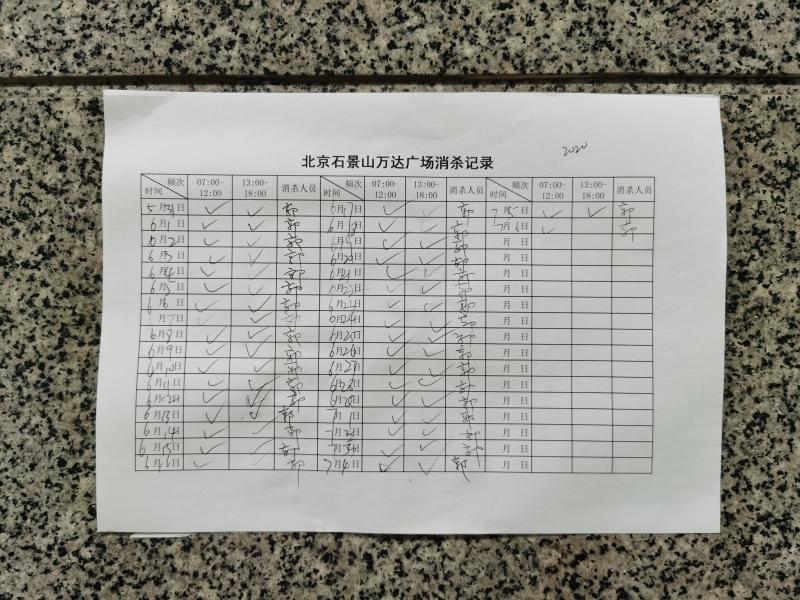 2020
北京石景山万达广场消杀记录
频次 时间 07:00-12:00 13:00-18:00 消杀人员 频次 时间 07:00-12:00 13:00-18:00 消杀人员 频次 时间 07:00-12:00 13:00-18:00 消杀人员
5月31日 ✓ ✓ 郭 6月17日 ✓ ✓ 郭 7月5日 ✓ ✓ 郭
6月1日 ✓ ✓ 郭 6月18日 ✓ ✓ 郭 7月6日 ✓ 郭
6月2日 ✓ ✓ 郭 6月19日 ✓ ✓ 郭 月 日
6月3日 ✓ ✓ 郭 6月20日 ✓ ✓ 郭 月 日
6月4日 ✓ ✓ 郭 6月21日 ✓ ✓ 郭 月 日
6月5日 ✓ ✓ 郭 6月22日 ✓ ✓ 郭 月 日
6月6日 ✓ ✓ 郭 6月 日 ✓ ✓ 郭 月 日
月7日 ✓ ✓ 郭 6月24日 ✓ ✓ 郭 月 日
6月8日 ✓ ✓ 郭 6月25日 ✓ ✓ 郭 月 日
6月9日 ✓ ✓ 郭 6月26日 ✓ ✓ 郭 月 日
6月10日 ✓ ✓ 郭 6月27日 ✓ ✓ 郭 月 日
6月11日 ✓ ✓ 郭 6月28日 ✓ ✓ 郭 月 日
6月12日 ✓ ✓ 郭 6月 日 ✓ ✓ 郭 月 日
6月13日 ✓ ✓ 郭 7月1日 ✓ ✓ 郭 月 日
6月14日 ✓ ✓ 郭 7月2日 ✓ ✓ 郭 月 日
6月15日 ✓ ✓ 郭 7月3日 ✓ ✓ 郭 月 日
6月16日 ✓ ✓ 郭 7月4日 ✓ ✓ 郭 月 日